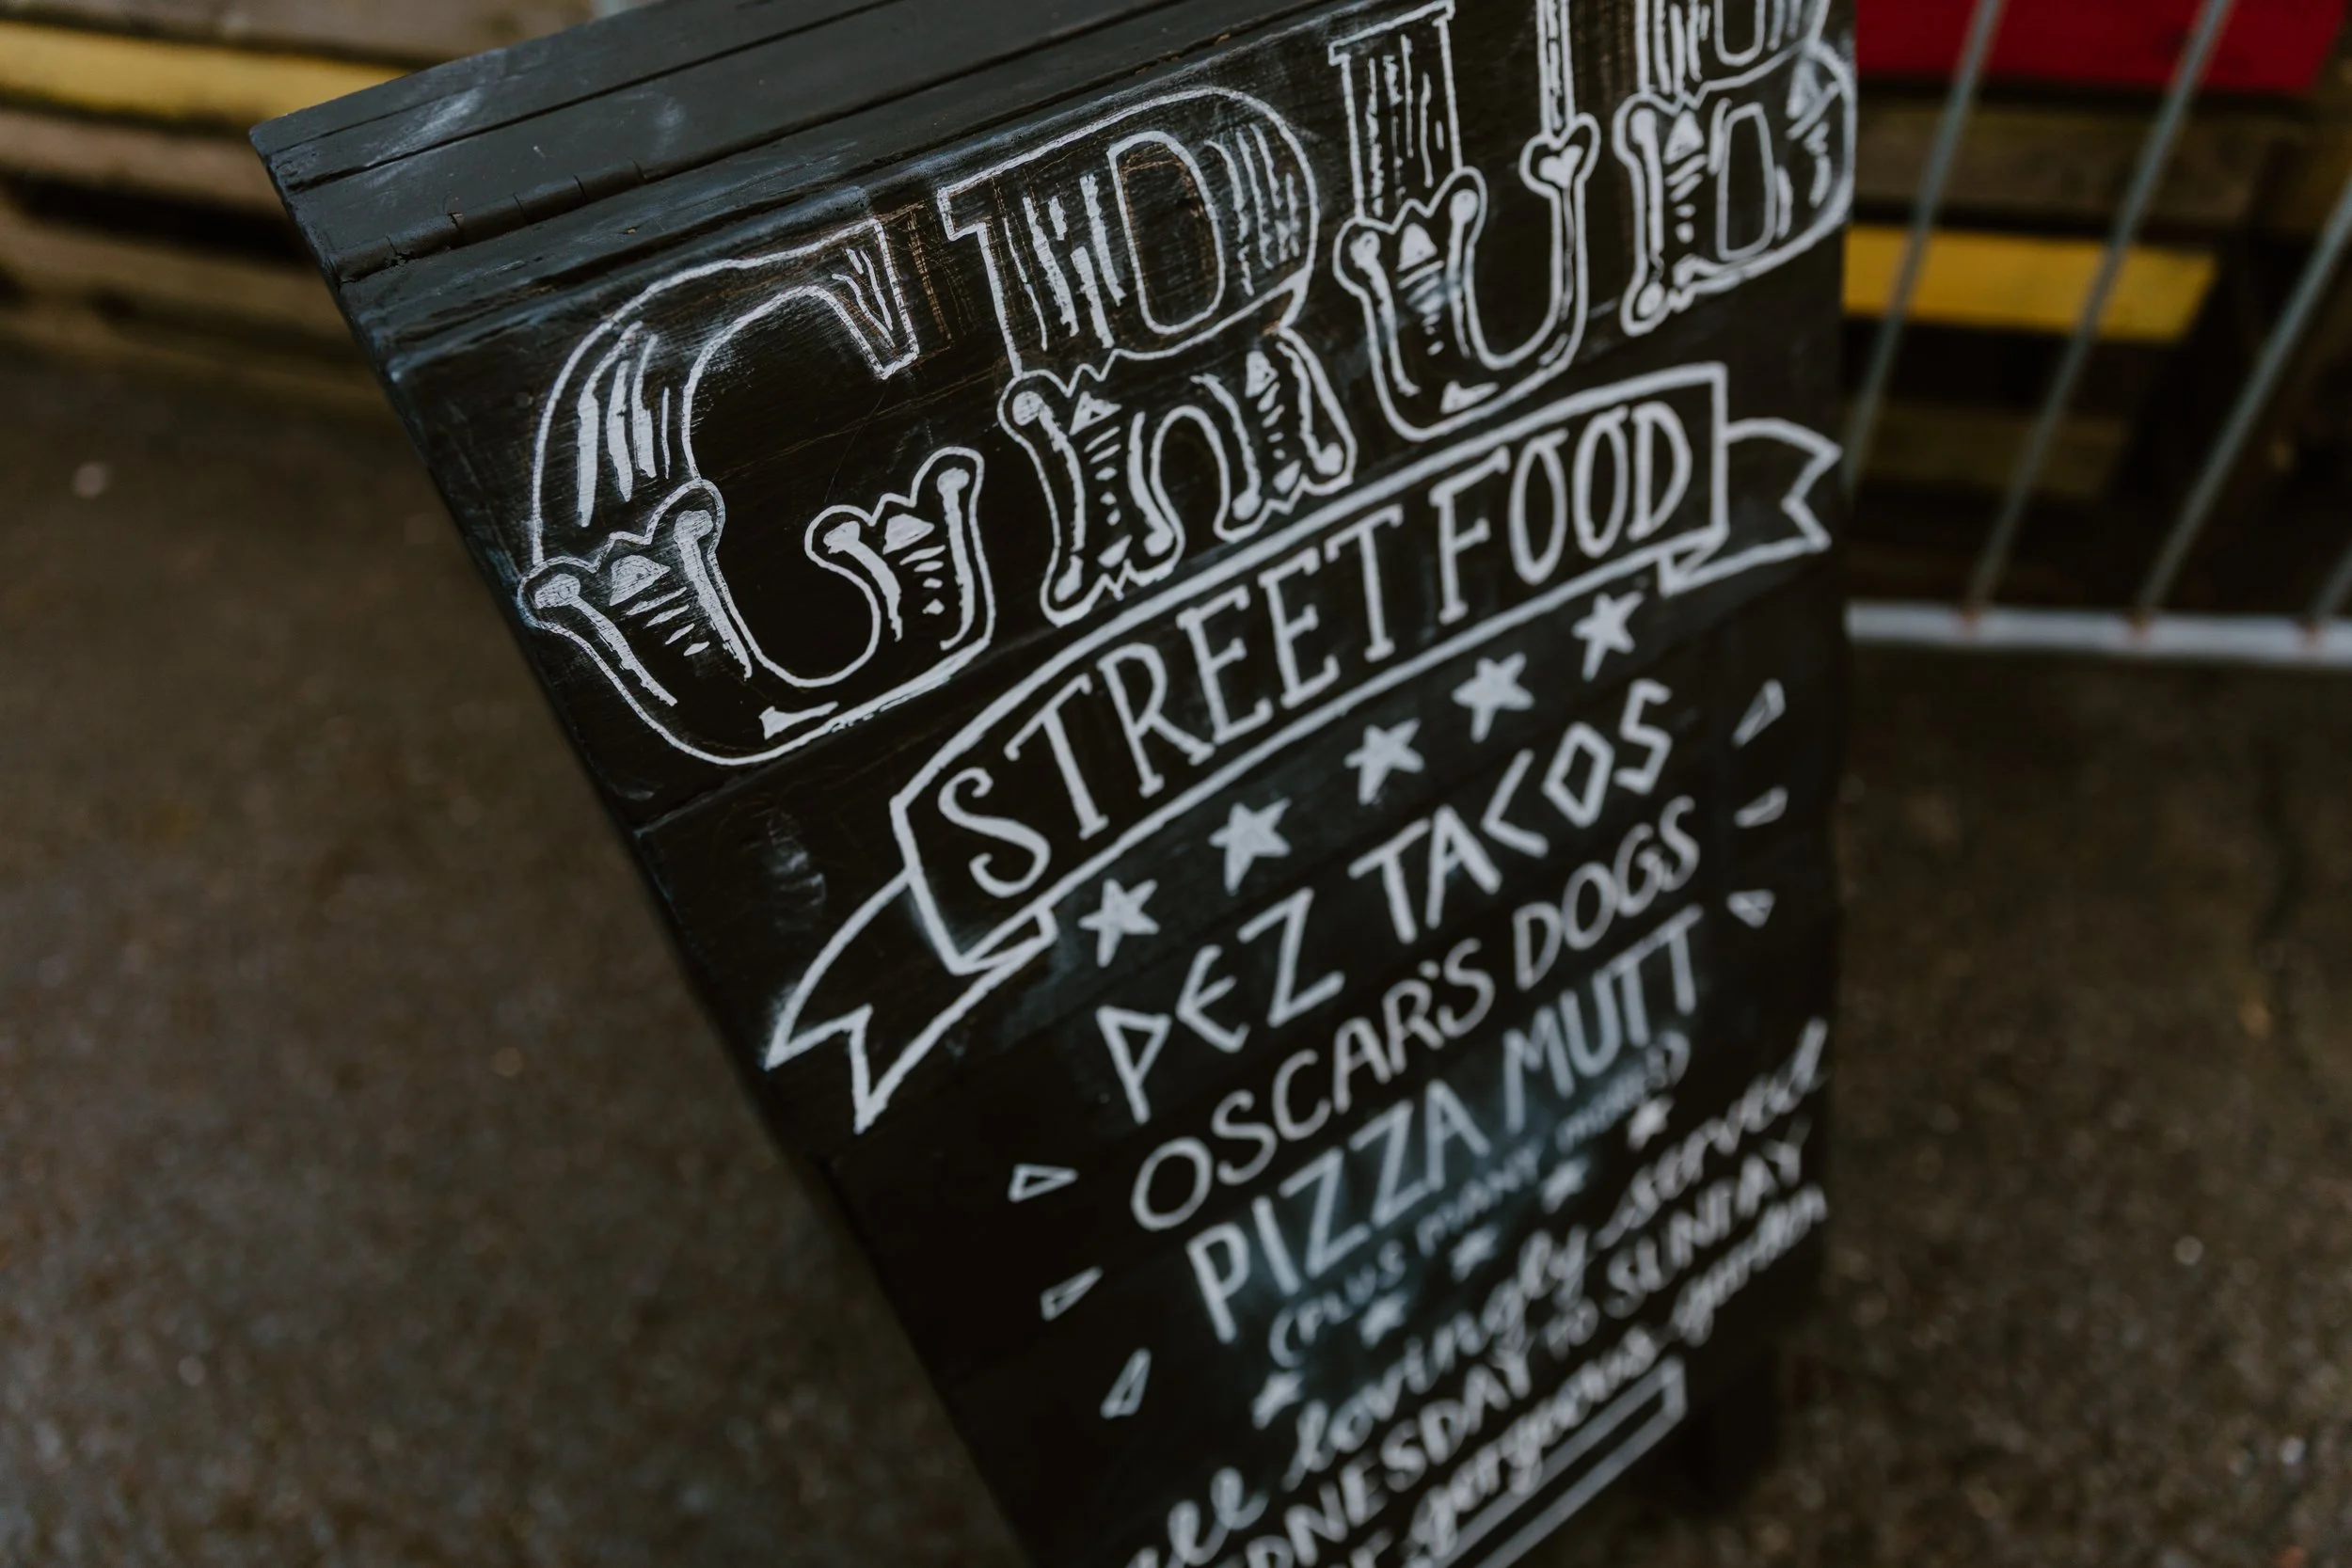 GRUB
STREET FOOD
PEZ TACOS
OSCAR'S DOGS
PIZZA MUTT
(PLUS MANY MORE)
lovingly served
TO SUNDAY
gorgeous garden